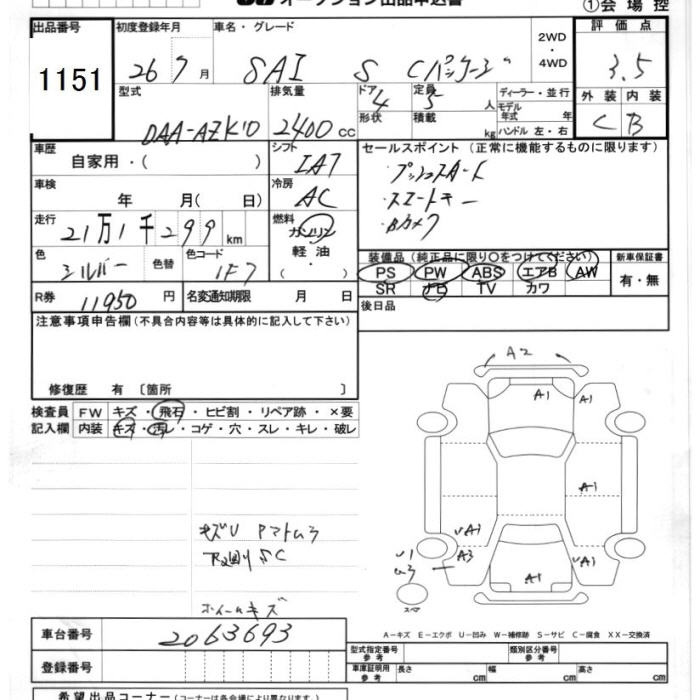 オークション出品申込書
①会場控
出品番号 初度登録年月 車名・グレード 2WD・4WD 評価点
1151 26 7月 SAI S Cパッケージ 3.5
型式 排気量 ドア 定員 ディーラー・並行 外装 内装
DAA-AZK10 2400cc 4 5人 モデル年式 年 C B
形状 積載 kg ハンドル 左・右
車歴 シフト セールスポイント (正常に機能するものに限ります)
自家用・( ) IA7 ・プッシュスタート
車検 冷房 ・スマートキー
年 月(日) AC ・Bカメラ
走行 燃料
21万1千299km ガソリン
軽油
色 色替 色コード 装備品(純正品に限り○をつけてください) 新車保証書
シルバー 1F7 PS PW ABS エアB AW 有・無
SR ナビ TV カワ
R券 11950円 名変通知期限 月 日 後日品
注意事項申告欄(不具合内容等は具体的に記入して下さい)
修復歴 有〔箇所 〕
検査員 FW キズ・飛石・ヒビ割・リペア跡・×要
記入欄 内装 キズ・汚レ・コゲ・穴・スレ・キレ・破レ
A2
A1 A1
A1
UA1 A1
A3 UA1
A1
スペア
キズU
下廻りSC
ホイールキズ
A－キズ E－エクボ U－凹み W－補修跡 S－サビ C－腐食 XX－交換済
車台番号 2063693
型式指定番号 参考 類別区分番号 参考
登録番号 車庫証明用 参考 長さ cm 幅 cm 高さ cm
希望出品コーナー(コーナーは各会場により異なります)